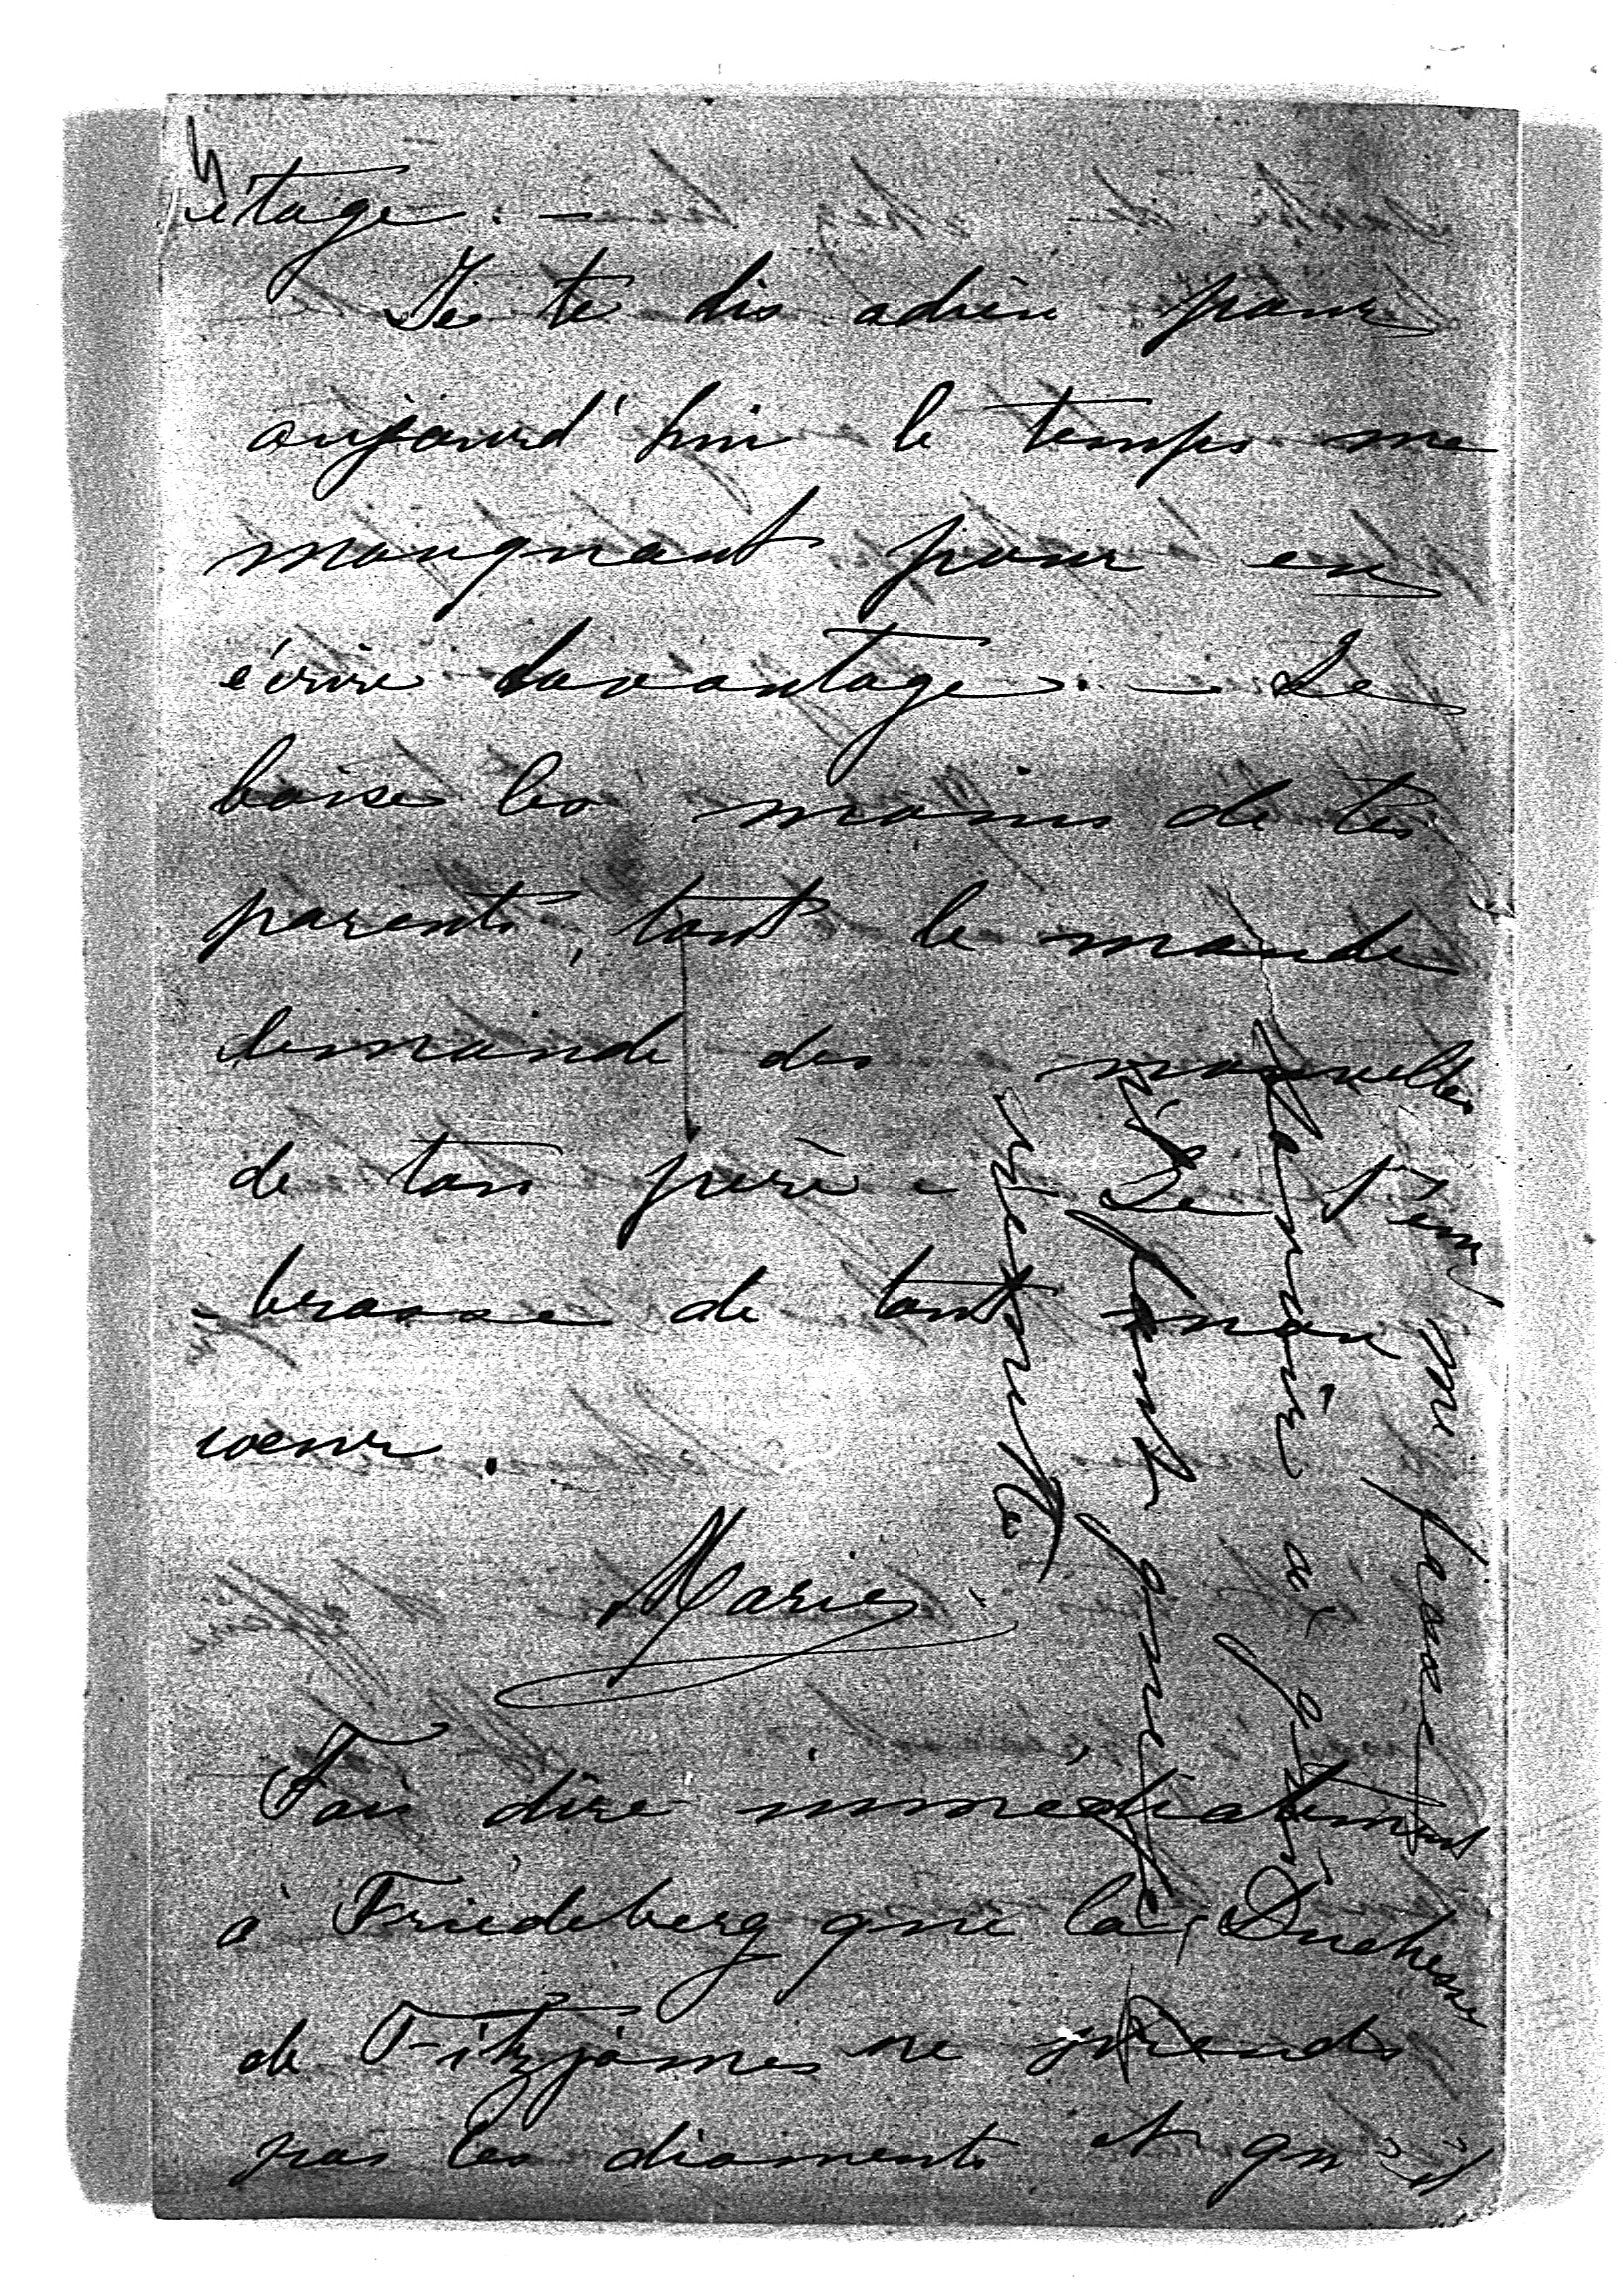 étage. —
Je te dis adieu pour
aujourd'hui le temps me
manquant pour en
écrire davantage. — Je
baise les mains de tes
parents, tout le monde
demande des nouvelles
de ton père — Je t'em
-brasse de tout mon
coeur.
Marie
Fais dire immédiatement
à Friedeberg que la Duchesse
de Fitzjames ne prends
pas les diaments et qu'il
me fasse